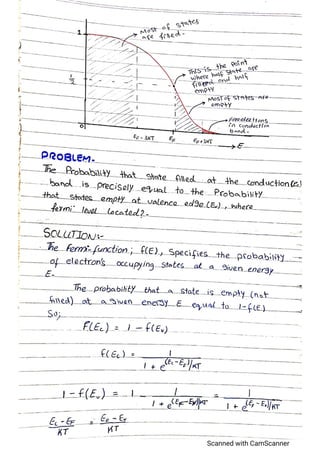 Most of states
are filled.
1
This is the point
where half state are
filled and half
empty
1/2
Most of states are
empty
free electrons
in conduction
band.
0
EF - 3KT EF EF + 3KT → E
PROBLEM-
The Probability that state filled at the conduction (Ec)
band is precisely equal to the Probability
that states empty at valence edge (Ev), where
fermi level located?.
SOLUTION:-
The Fermi-function; f(E), Specifies the probability
of electrons occupying states at a given energy
E-
The probability that a state is empty (not
filled) at a given energy E equal to 1-f(E)
So;
F(Ec) = 1 - f(Ev)
f(Ec) = 1 / 1 + e^(Ec-EF)/KT
1 - f(Ev) = 1 - 1 / 1 + e^(Ev-EF)/KT = 1 / 1 + e^(EF-Ev)/KT
Ec-EF / KT = EF-Ev / KT
Scanned with CamScanner